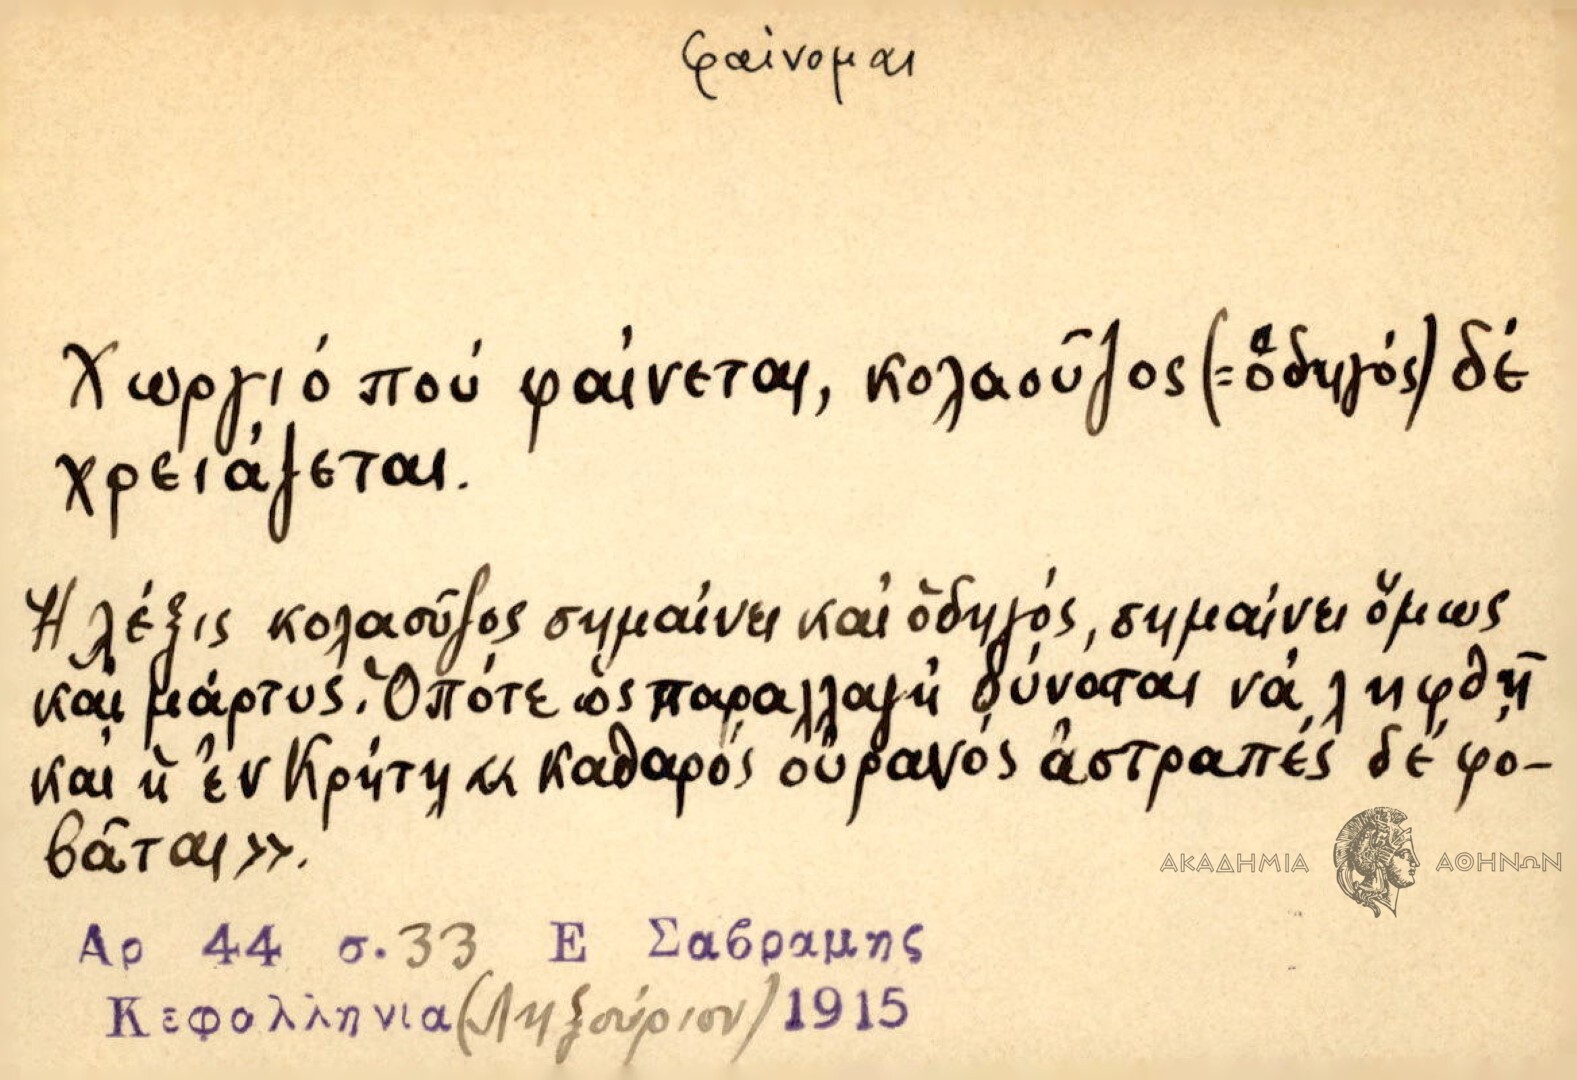 φαίνομαι
Χωργιό πού φαίνεται, κολαοῦζος (= ὁδηγός) δέ
χρειάζεται.
Ἡ λέξις κολαοῦζος σημαίνει καί ὁδηγός, σημαίνει ὅμως
καί μάρτυς. Ὁπότε ὡς παραλλαγή δύναται νά ληφθῇ
καί ἡ ἐν Κρήτῃ «καθαρός οὐρανός ἀστραπές δέ φο-
βᾶται».
ΑΚΑΔΗΜΙΑ ΑΘΗΝΩΝ
Αρ 44 σ. 33 Ε Σαβραμης
Κεφαλληνια (Ληξούριον) 1915